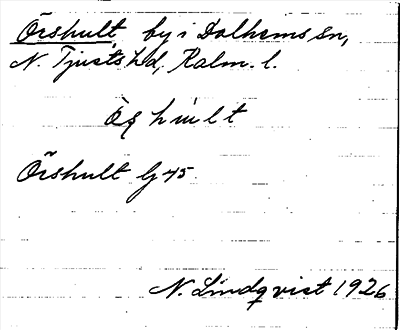 Örshult by i Dalhems sn,
N. Tjusts hd, Kalm. l.
Örshult G 45
N. Lindqvist 1926